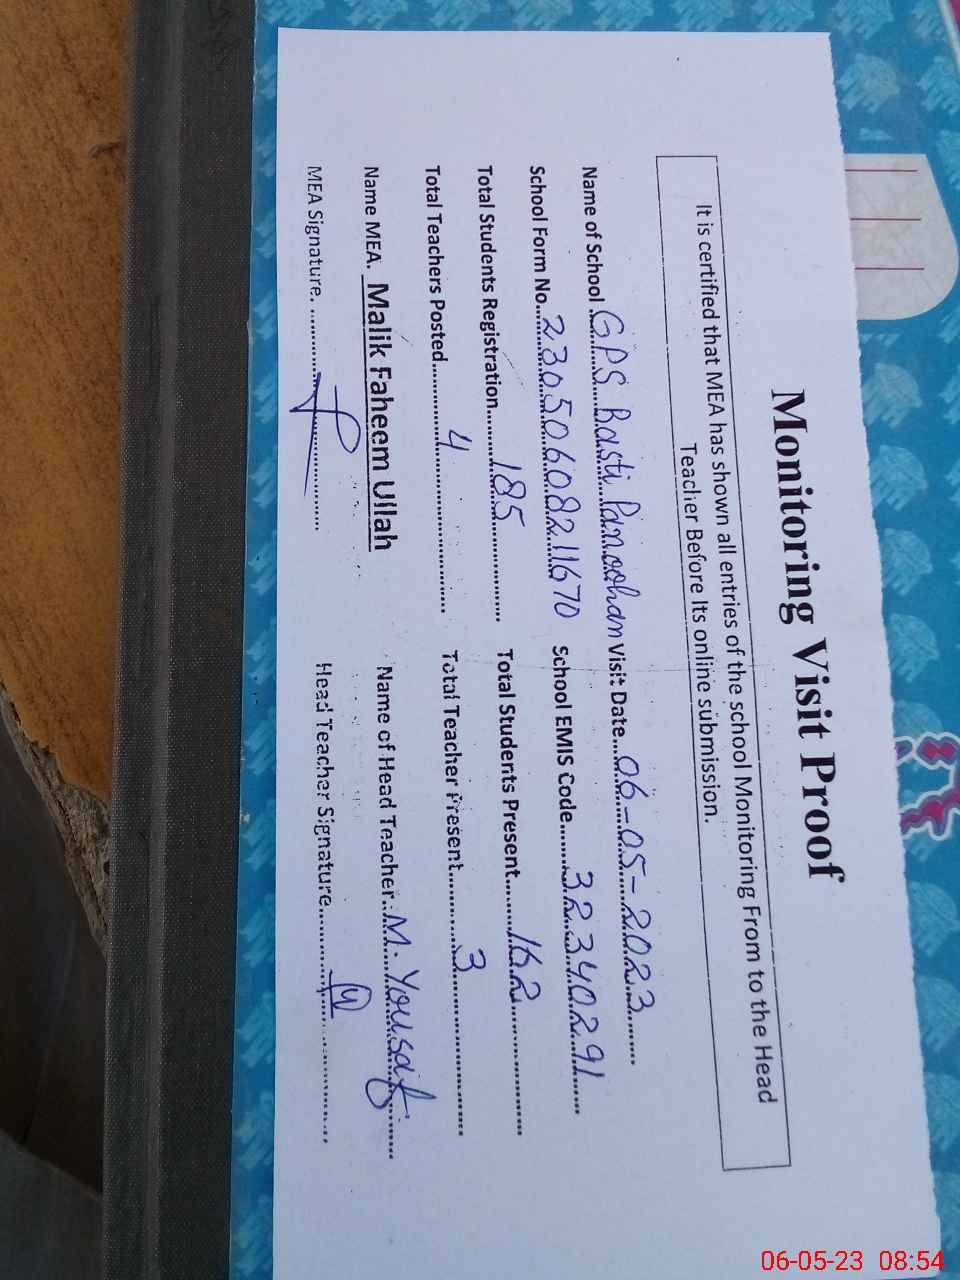 Monitoring Visit Proof
It is certified that MEA has shown all entries of the school Monitoring From to the Head
Teacher Before Its online submission.
Name of School GPS Basti Panoohan Visit Date 06-05-2023
School Form No. 23050608211670 School EMIS Code 32340291
Total Students Registration 185 Total Students Present 162
Total Teachers Posted 4 Total Teacher Present 3
Name MEA. Malik Faheem Ullah Name of Head Teacher M. Yousaf
MEA Signature. Head Teacher Signature
06-05-23 08:54